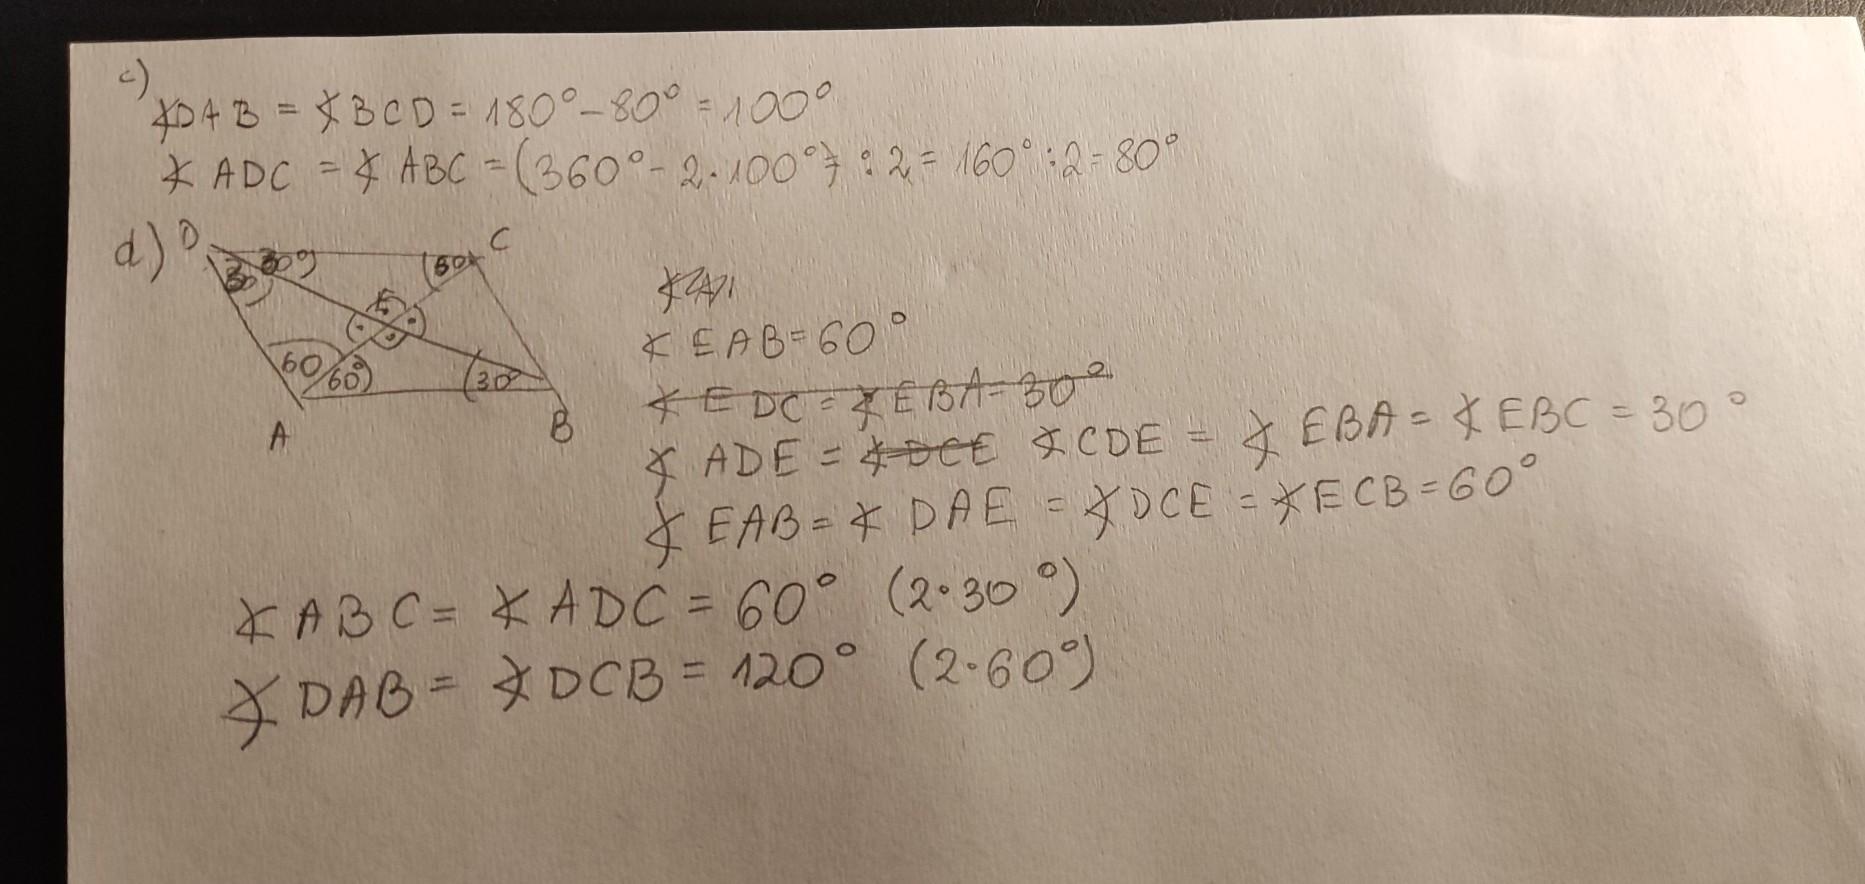 c)
∡DAB = ∡BCD = 180° - 80° = 100°
∡ADC = ∡ABC = (360° - 2·100°) : 2 = 160° : 2 = 80°
d) D C
30°) (60
30
E
60 60°) (30°
A B
∡EAB = 60°
∡EDC = ∡EBA = 30°
∡ADE = ∡DCE ∡CDE = ∡EBA = ∡EBC = 30°
∡EAB = ∡DAE = ∡DCE = ∡ECB = 60°
∡ABC = ∡ADC = 60° (2·30°)
∡DAB = ∡DCB = 120° (2·60°)